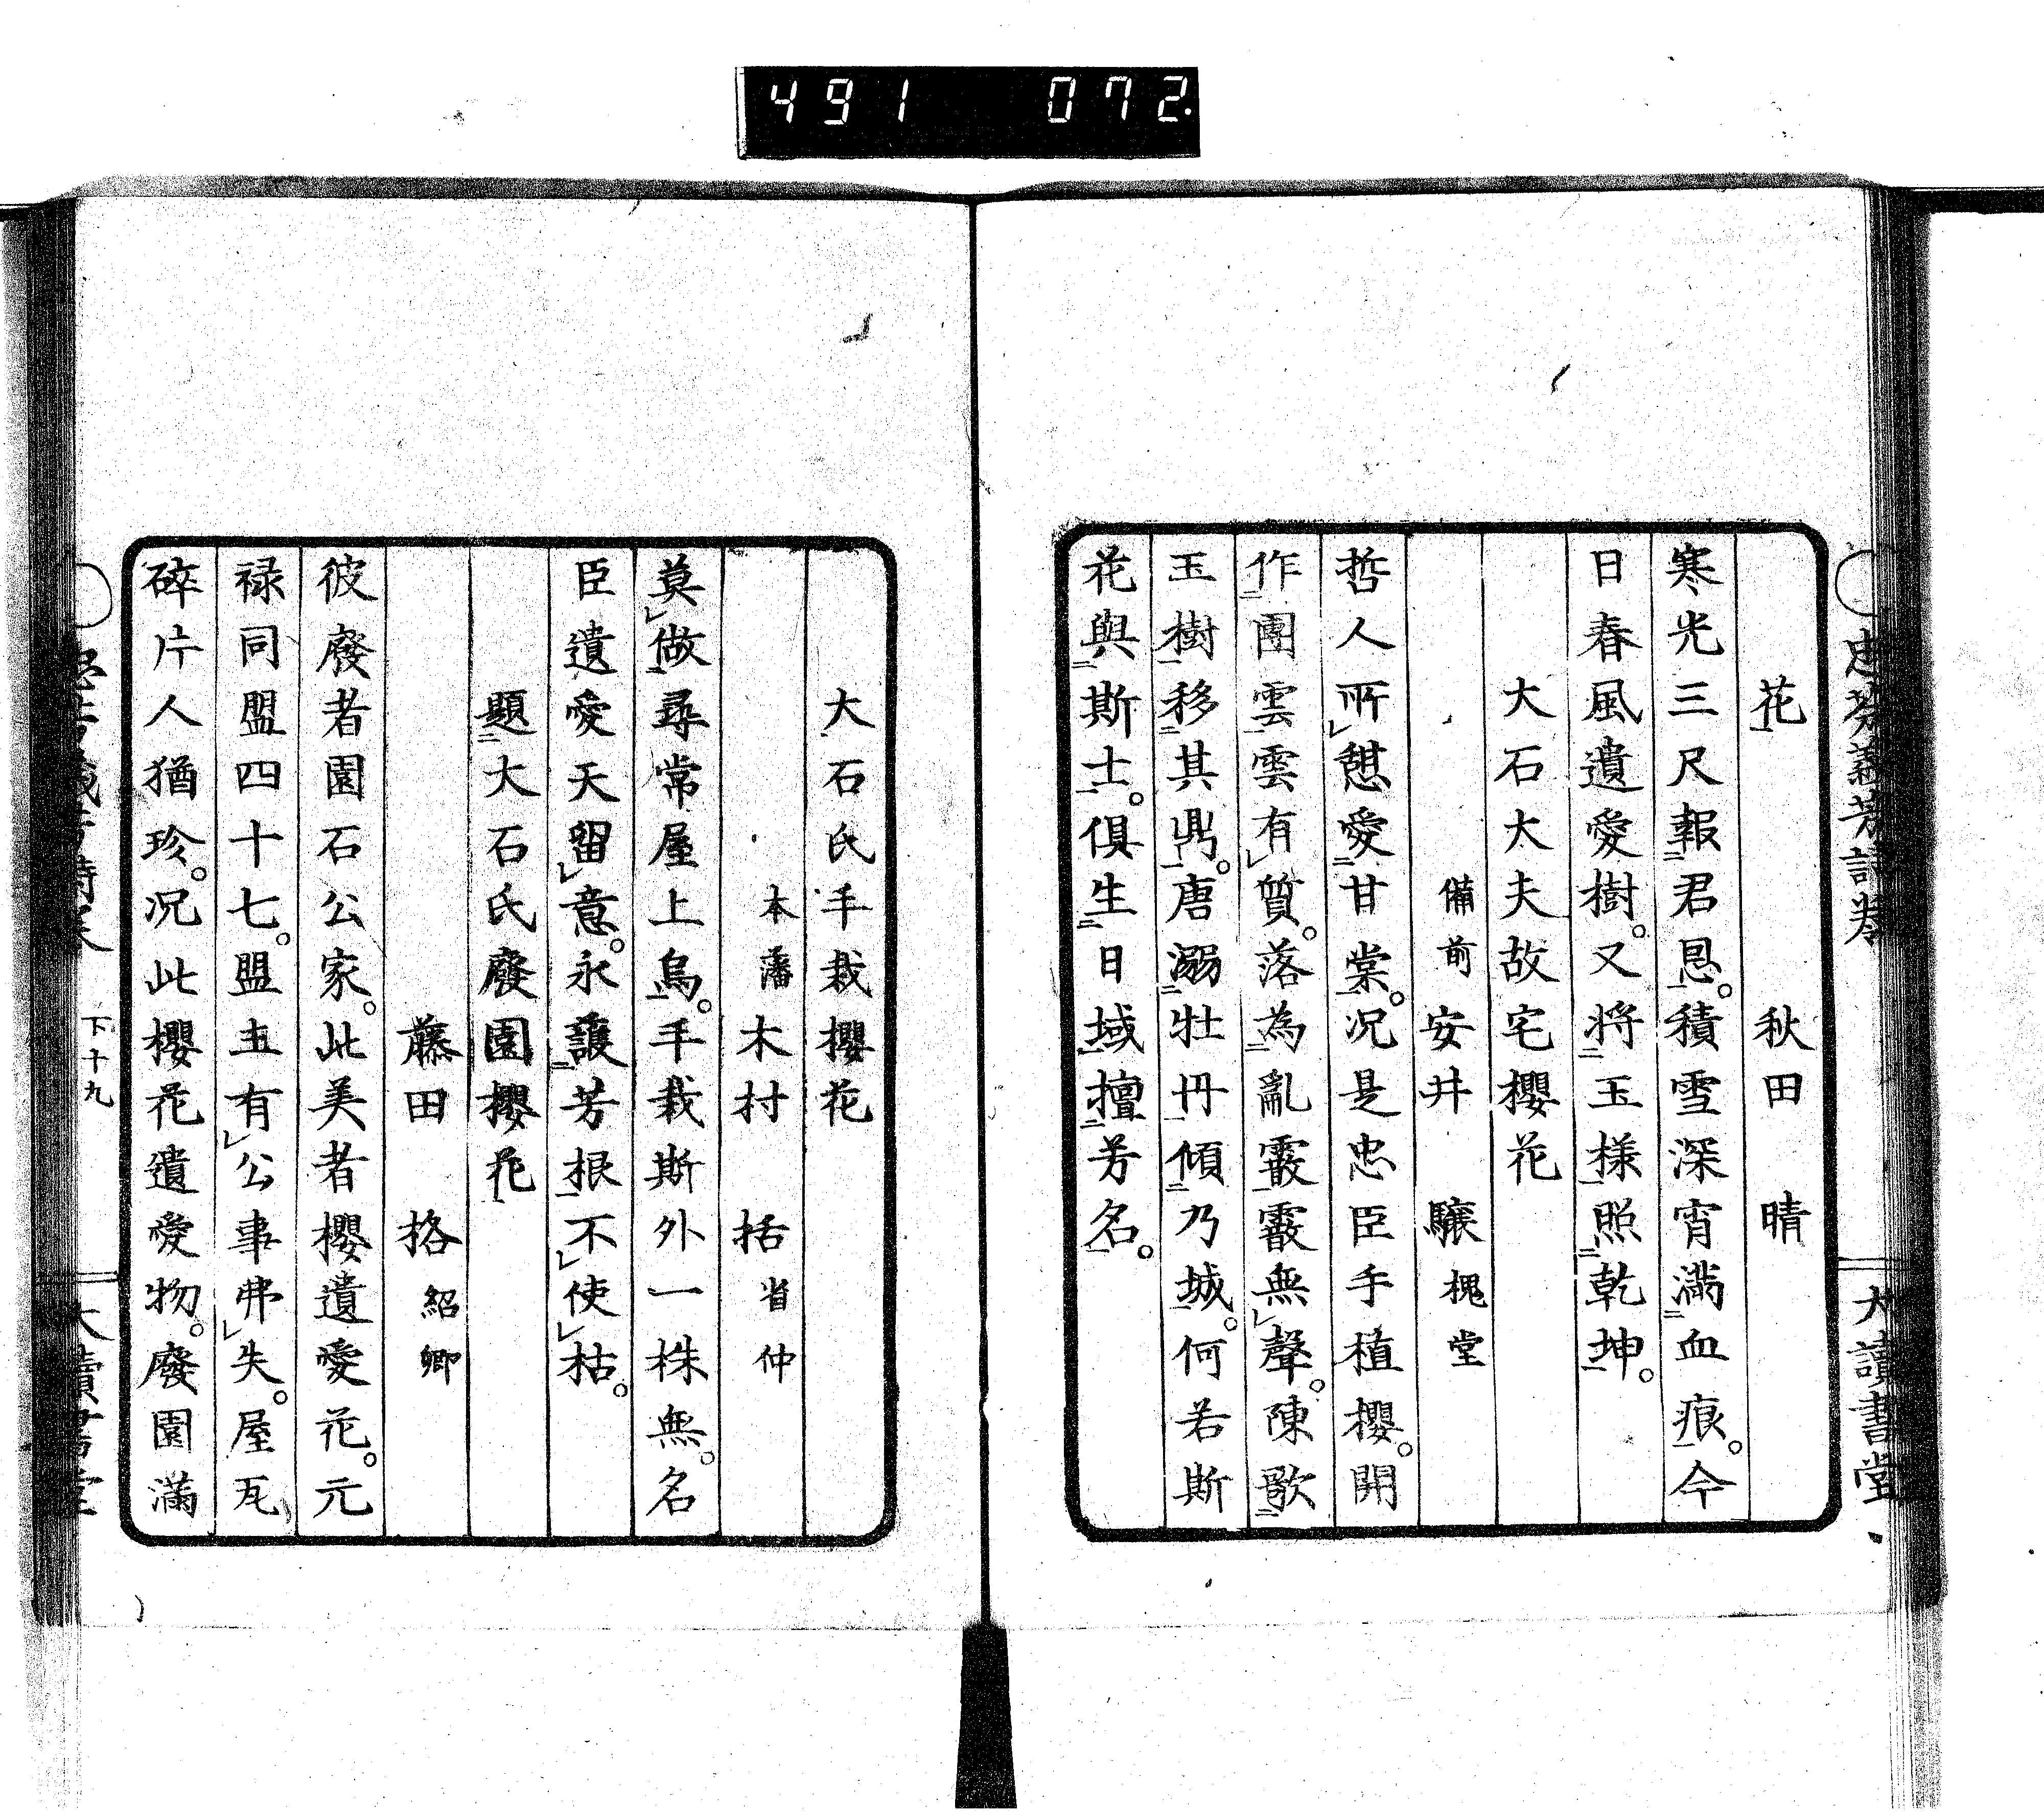 491 072.
花 秋田 晴
寒光三尺報君恩。積雪深宵滿血痕。今
日春風遺愛樹。又將玉樣照乾坤。
大石大夫故宅櫻花
備前 安井 驤 槐堂
哲人所憇愛甘棠。況是忠臣手植櫻。開
作團雲雲有質。落為亂霰霰無聲。陳歌
玉樹移其鼎。唐溺牡丹傾乃城。何若斯
花與斯士。俱生日域擅芳名。
大讀書堂
大石氏手栽櫻花
本藩 木村 括 省仲
莫做尋常屋上烏。手栽斯外一株無。名
臣遺愛天留意。永護芳根不使枯。
題大石氏廢園櫻花
藤田 挌 紹卿
彼廢者園石公家。此美者櫻遺愛花。元
祿同盟四十七。盟主有公事弗失。屋瓦
碎片人猶珍。況此櫻花遺愛物。廢園滿
下十九